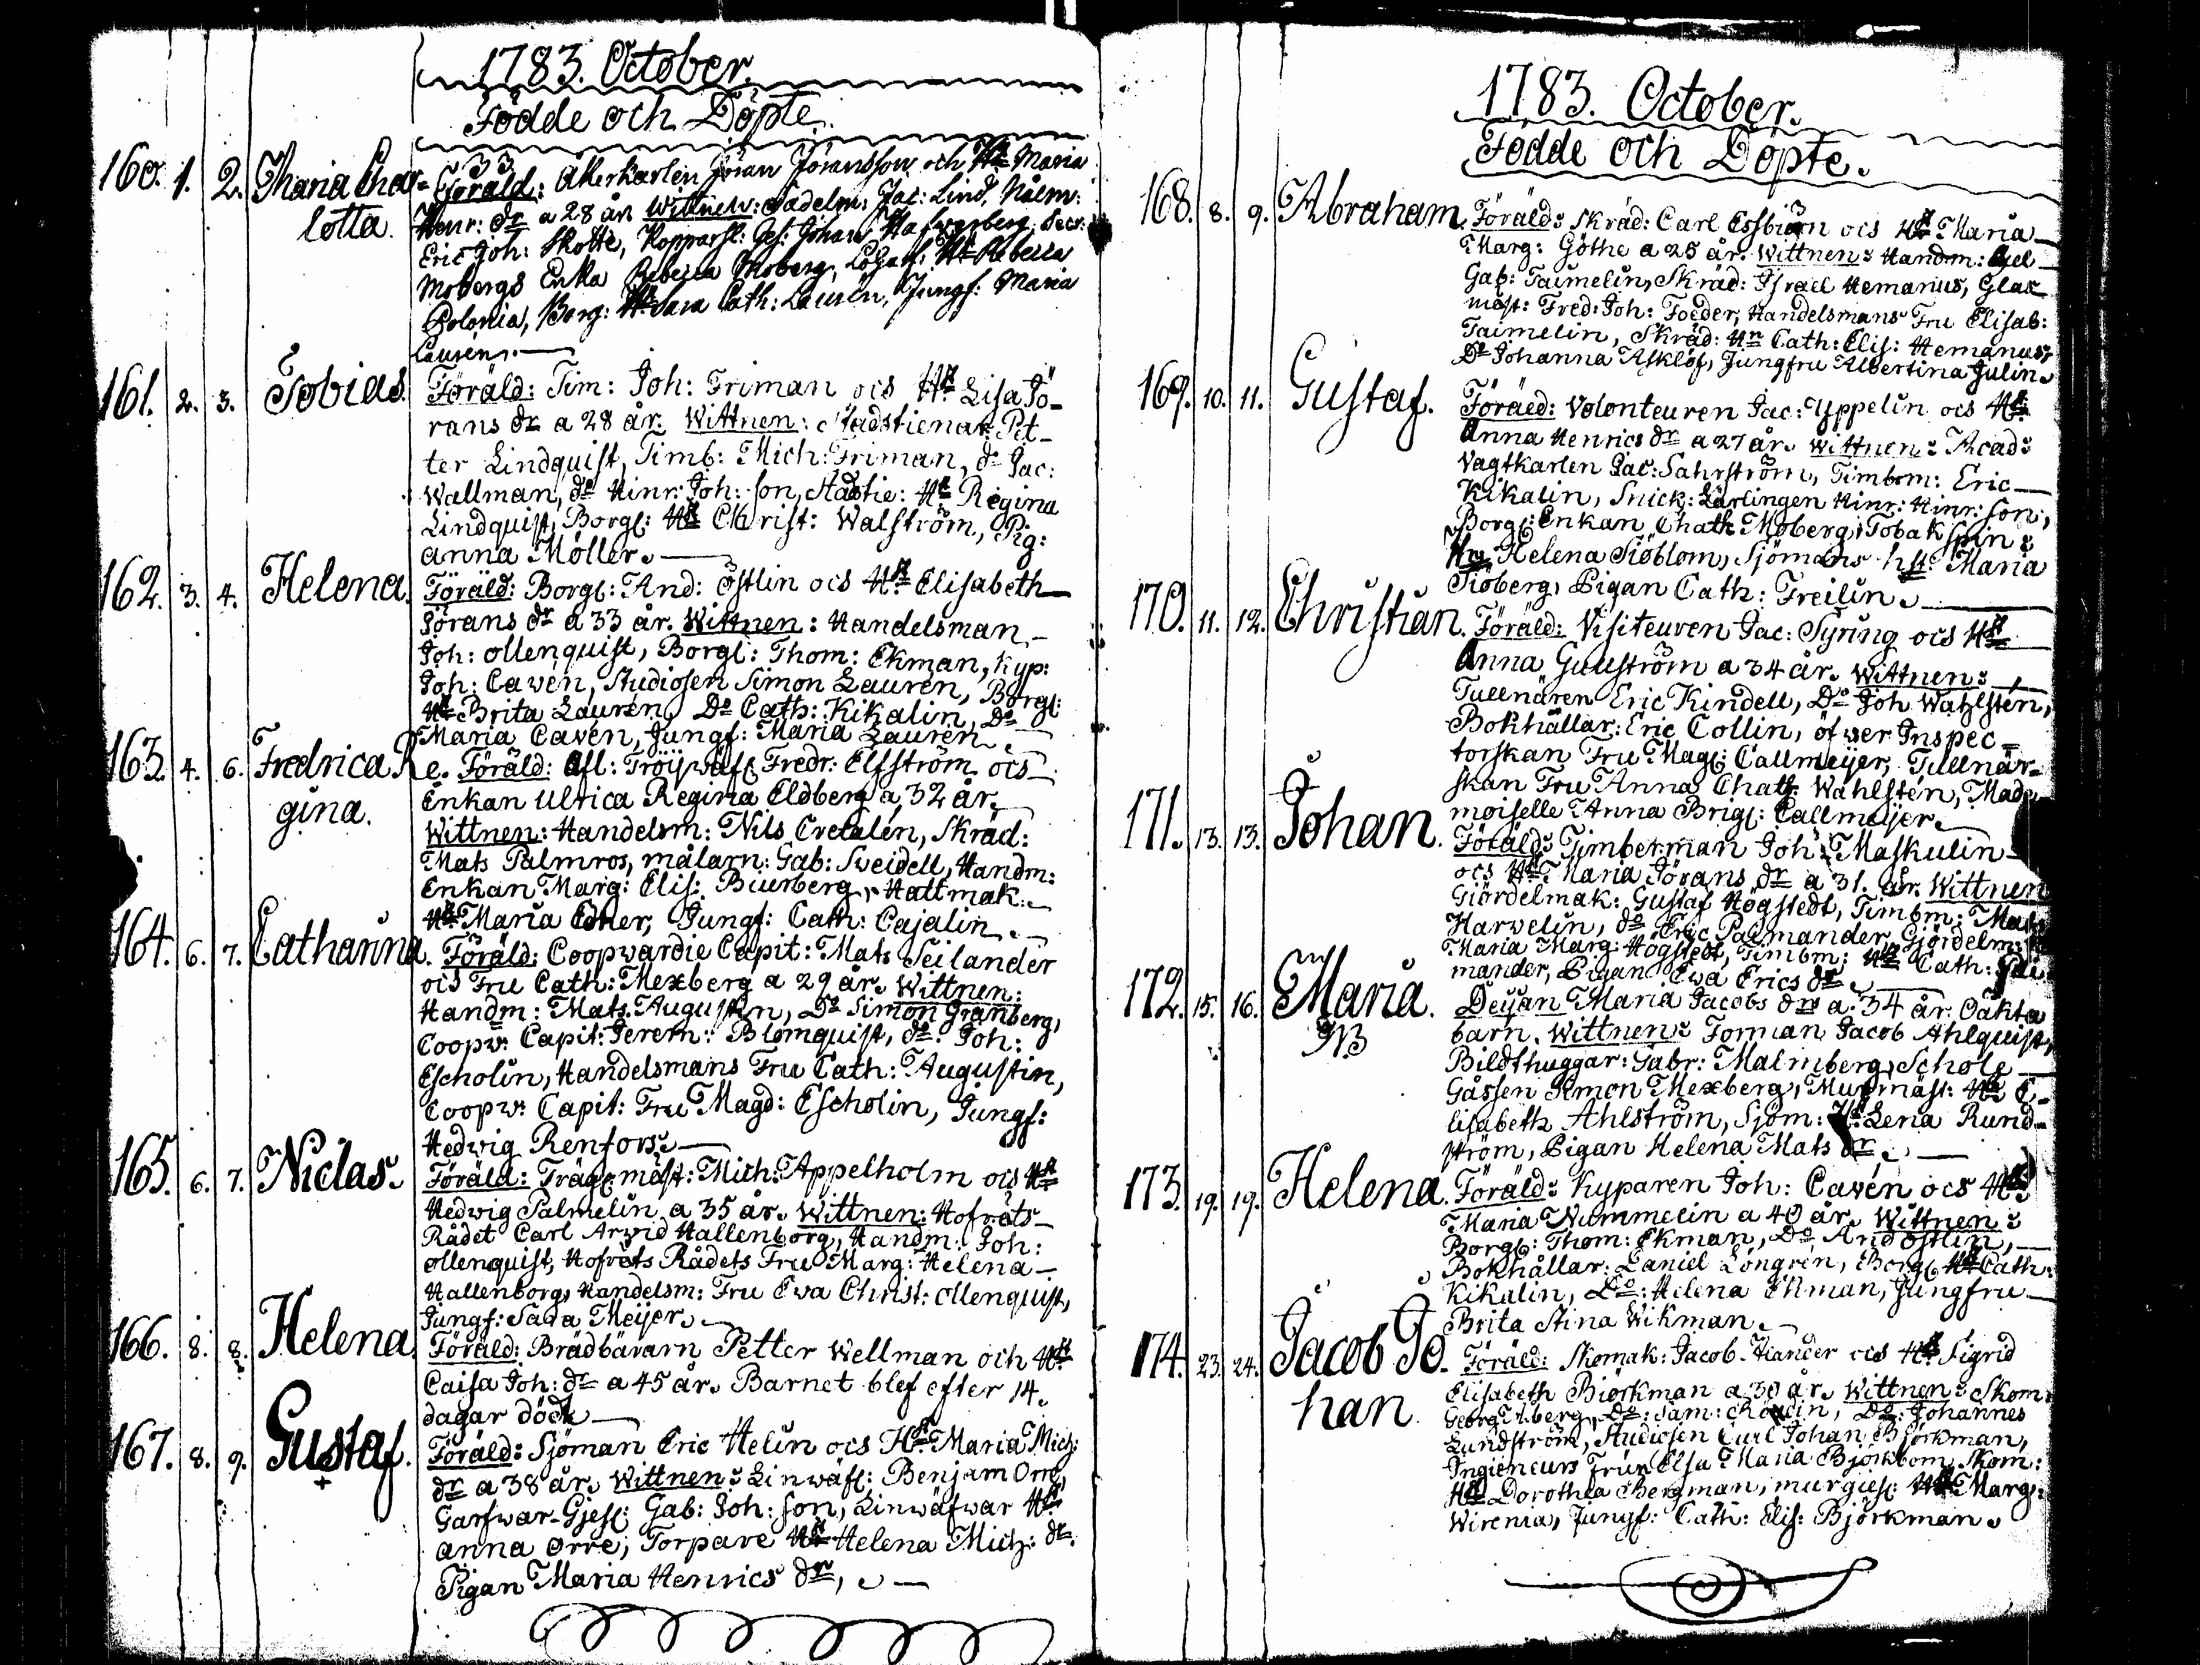 1783. October.
Födde och Döpte.
160. 1. 2. Maria Char=
lotta.
Föräld: Åkerkarlen Jöran Jöransson och H: Maria
Henr: dr a 28 år Wittnen: Sadelm: Jac: Lind, Målm:
Eric Joh: Skotte, Kopparsl: Ges: Johan
Mobergs Enka Rebecca Moberg, H: Rebecca
Polonia, Borg: H: Sara Cath: Laurén, Jungf: Maria
Laurén.
161. 2. 3. Tobias.
Föräld: Tim: Joh: Friman ocs H: Lisa Jö-
rans dr a 28 år. Wittnen: Stadstienar: Pet-
ter Lindquist, Timb: Mich: Friman, do Jac:
Wallman, do Hinr: Joh: son, Stadtie: H: Regina
Lindquist, Borgl: H: Christ: Walström, Pig:
anna Möller.
162. 3. 4. Helena.
Föräld: Borgl: And: Östlin ocs H: Elisabeth
Jörans dr a 33 år. Wittnen: Handelsman
Joh: Ollenquist, Borgl: Thom: Ekman, Kyp:
Joh: Cavén, Studiosen Simon Laurén, Borgl:
H: Brita Laurén, Do Cath: Kikalin, Do
Maria Cavén, Jungf: Maria Laurén.
163. 4. 6. Fredrica Re.
gina.
Föräld: Afl: Tröijwäfv: Fredr: Elfström ocs
Enkan Ulrica Regina Eldberg a 32 år.
Wittnen: Handelsm: Nils Cretalén, Skräd:
Mats Palmros, målarn: Gab: Sveidell, Handm:
Enkan Marg: Elis: Biurberg, Hattmak:
H: Maria Ener, Jungf: Cath: Cajalin.
164. 6. 7. Catharina.
Föräld: Coopwardie Capit: Mats Seilander
ocs Fru Cath: Mexberg a 29 år. Wittnen:
Handm: Mats Augustin, Do Simon Granberg,
Coopw: Capit: Jerem: Blomquist, do: Joh:
Escholin, Handelsmans Fru Cath: Augustin,
Coopw: Capit: Fru Magd: Escholin, Jungf:
Hedvig Renfors.
165. 6. 7. Niclas.
Föräld: Trägs mäst: Mich: Appelholm ocs H:
Hedvig Palmelin a 35 år. Wittnen: Hofräts
Rådet Carl Arvid Hallenborg, Handm: Joh:
Ollenquist, Hofräts Rådets Fru Marg: Helena
Hallenborg, Handelsm: Fru Eva Christ: Ollenquist,
Jungf: Sara Meijer.
166. 8. 8. Helena.
Föräld: Brädbärarn Petter Wellman och H:
Caisa Joh: dr a 45 år. Barnet blef efter 14.
dagar dödt
167. 8. 9. Gustaf.
Föräld: Sjöman Eric Helin ocs H: Maria Mich:
dr a 38 år. Wittnen: Linwäfv: Benjam Orre,
Garfwar-Gjesl: Gab: Joh: son, Linwäfwar H:
anna Orre, Torpare H: Helena Mich: dr.
Pigan Maria Henrics dr,
1783. October.
Födde och Döpte.
168. 8. 9. Abraham.
Föräld: Skräd: Carl Essbiörn ocs H: Maria
Marg: Göthe a 25 år. Wittnen: Handm: Gjel
Gab: Taimelin, Skräd: Israel Hemanus, Glas
mäst: Fred: Joh: Foeder, Handelsmans Fru Elisab:
Taimelin, Skräd: H: Cath: Elis: Hemanus,
Do Johanna Asklöf, Jungfru Albertina Julin.
169. 10. 11. Gustaf.
Föräld: Volonteuren Jac: Uppelin ocs H:
Anna Henrics dr a 27 år. Wittnen: Acad:
Vagtkarlen Jac: Sahrström, Timbrm: Eric
Kikalin, Snick: Lärlingen Hinr: Hinr: son,
Borgl: Enkan Chath: Moberg, Tobak spin:
H: Helena Siöblom, Sjömans hst: Maria
Siöberg, Pigan Cath: Freilin.
170. 11. 12. Christian.
Föräld: Visiteuren Jac: Syring ocs H:
Anna Gullström a 34 år. Wittnen:
Tullnären Eric Kindell, Do Joh Wahlstén,
Bokhållar: Eric Collin, öfwer Inspec=
torskan Fru Magl: Callmeijer, Tullnär=
skan Fru Anna Chatl: Wahlstén, Made
moiselle Anna Brigl: Callmeijer.
171. 13. 13. Johan.
Föräld: Timberman Joh: Maskulin
ocs H: Maria Jörans dr a 31. år. Wittnen
Giördelmak: Gustaf Högstedt, Timbm: Mats
Harvelin, do Eric Palmander, Gjördelm:
Maria Marg: Högstedt, Timbm: H: Cath: Pal
mander, Pigan Ewa Erics dr.
172. 15. 16. Maria.
NB
Deijan Maria Jacobs dr a 34 år. Oäkta
barn. Wittnen: Forman Jacob Ahlquist,
Bildthuggar: Gabr: Malmberg, Schole
Gåssen Simon Mexberg, Murmäst: H: E-
lisabeth Ahlström, Sjöm: H: Lena Rund=
ström, Pigan Helena Mats dr.
173. 19. 19. Helena.
Föräld: Kyparen Joh: Cavén ocs H:
Maria Nummelin a 40 år. Wittnen:
Borgl: Thom: Ekman, Do And Östlin,
Bokhållar: Daniel Löngrén, Borgl H: Cath:
Kikalin, Do: Helena Ekman, Jungfru
Brita Stina Wikman.
174. 23. 24. Jacob Jo-
han
Föräld: Skomak: Jacob Ilander ocs H: Sigrid
Elisabeth Biörkman a 30 år. Wittnen: Skom:
Georg Åberg, Do: Sam: Do: Johannes
Lundström, Studiosen Carl Johan Björkman,
Ingieneurs Frun Elsa Maria Björkbom, Skom:
H: Dorothea Bergman, murgiesl: H: Marg:
Wirenia, Jungf: Cath: Elis: Björkman.